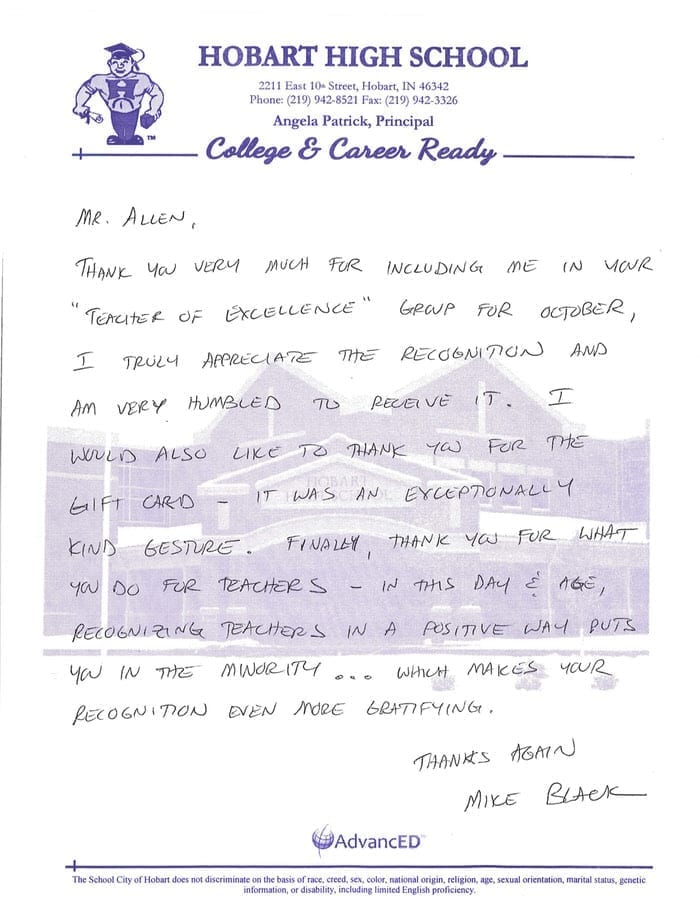 HOBART HIGH SCHOOL
2211 East 10th Street, Hobart, IN 46342
Phone: (219) 942-8521 Fax: (219) 942-3326
Angela Patrick, Principal
College & Career Ready
H
TM
MR. ALLEN,
THANK YOU VERY MUCH FOR INCLUDING ME IN YOUR
"TEACHER OF EXCELLENCE" GROUP FOR OCTOBER,
I TRULY APPRECIATE THE RECOGNITION AND
AM VERY HUMBLED TO RECEIVE IT. I
WOULD ALSO LIKE TO THANK YOU FOR THE
GIFT CARD – IT WAS AN EXCEPTIONALLY
KIND GESTURE. FINALLY, THANK YOU FOR WHAT
YOU DO FOR TEACHERS – IN THIS DAY & AGE,
RECOGNIZING TEACHERS IN A POSITIVE WAY PUTS
YOU IN THE MINORITY ... WHICH MAKES YOUR
RECOGNITION EVEN MORE GRATIFYING.
THANKS AGAIN
MIKE BLACK
HOBART
HIGH SCHOOL
AdvancED™
The School City of Hobart does not discriminate on the basis of race, creed, sex, color, national origin, religion, age, sexual orientation, marital status, genetic
information, or disability, including limited English proficiency.